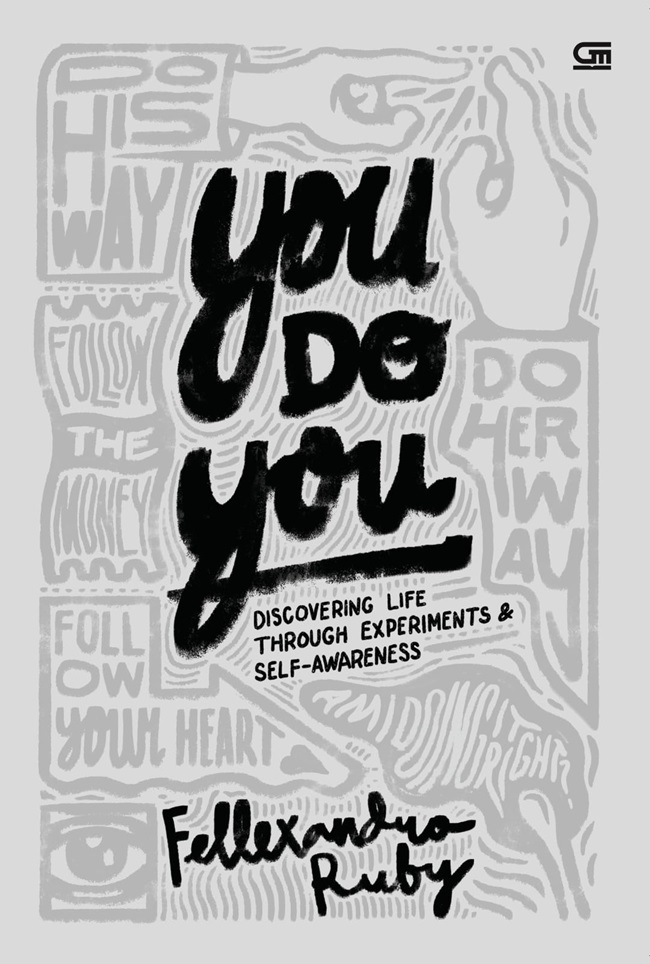 GM
DO
HIS
WAY
YOU
DO
YOU
FOLLOW
THE
MONEY
DO
HER
W
AY
DISCOVERING LIFE
THROUGH EXPERIMENTS &
SELF-AWARENESS
FOLL
OW
YOUR HEART
AM I DOING IT RIGHT?
Fellexandro
Ruby